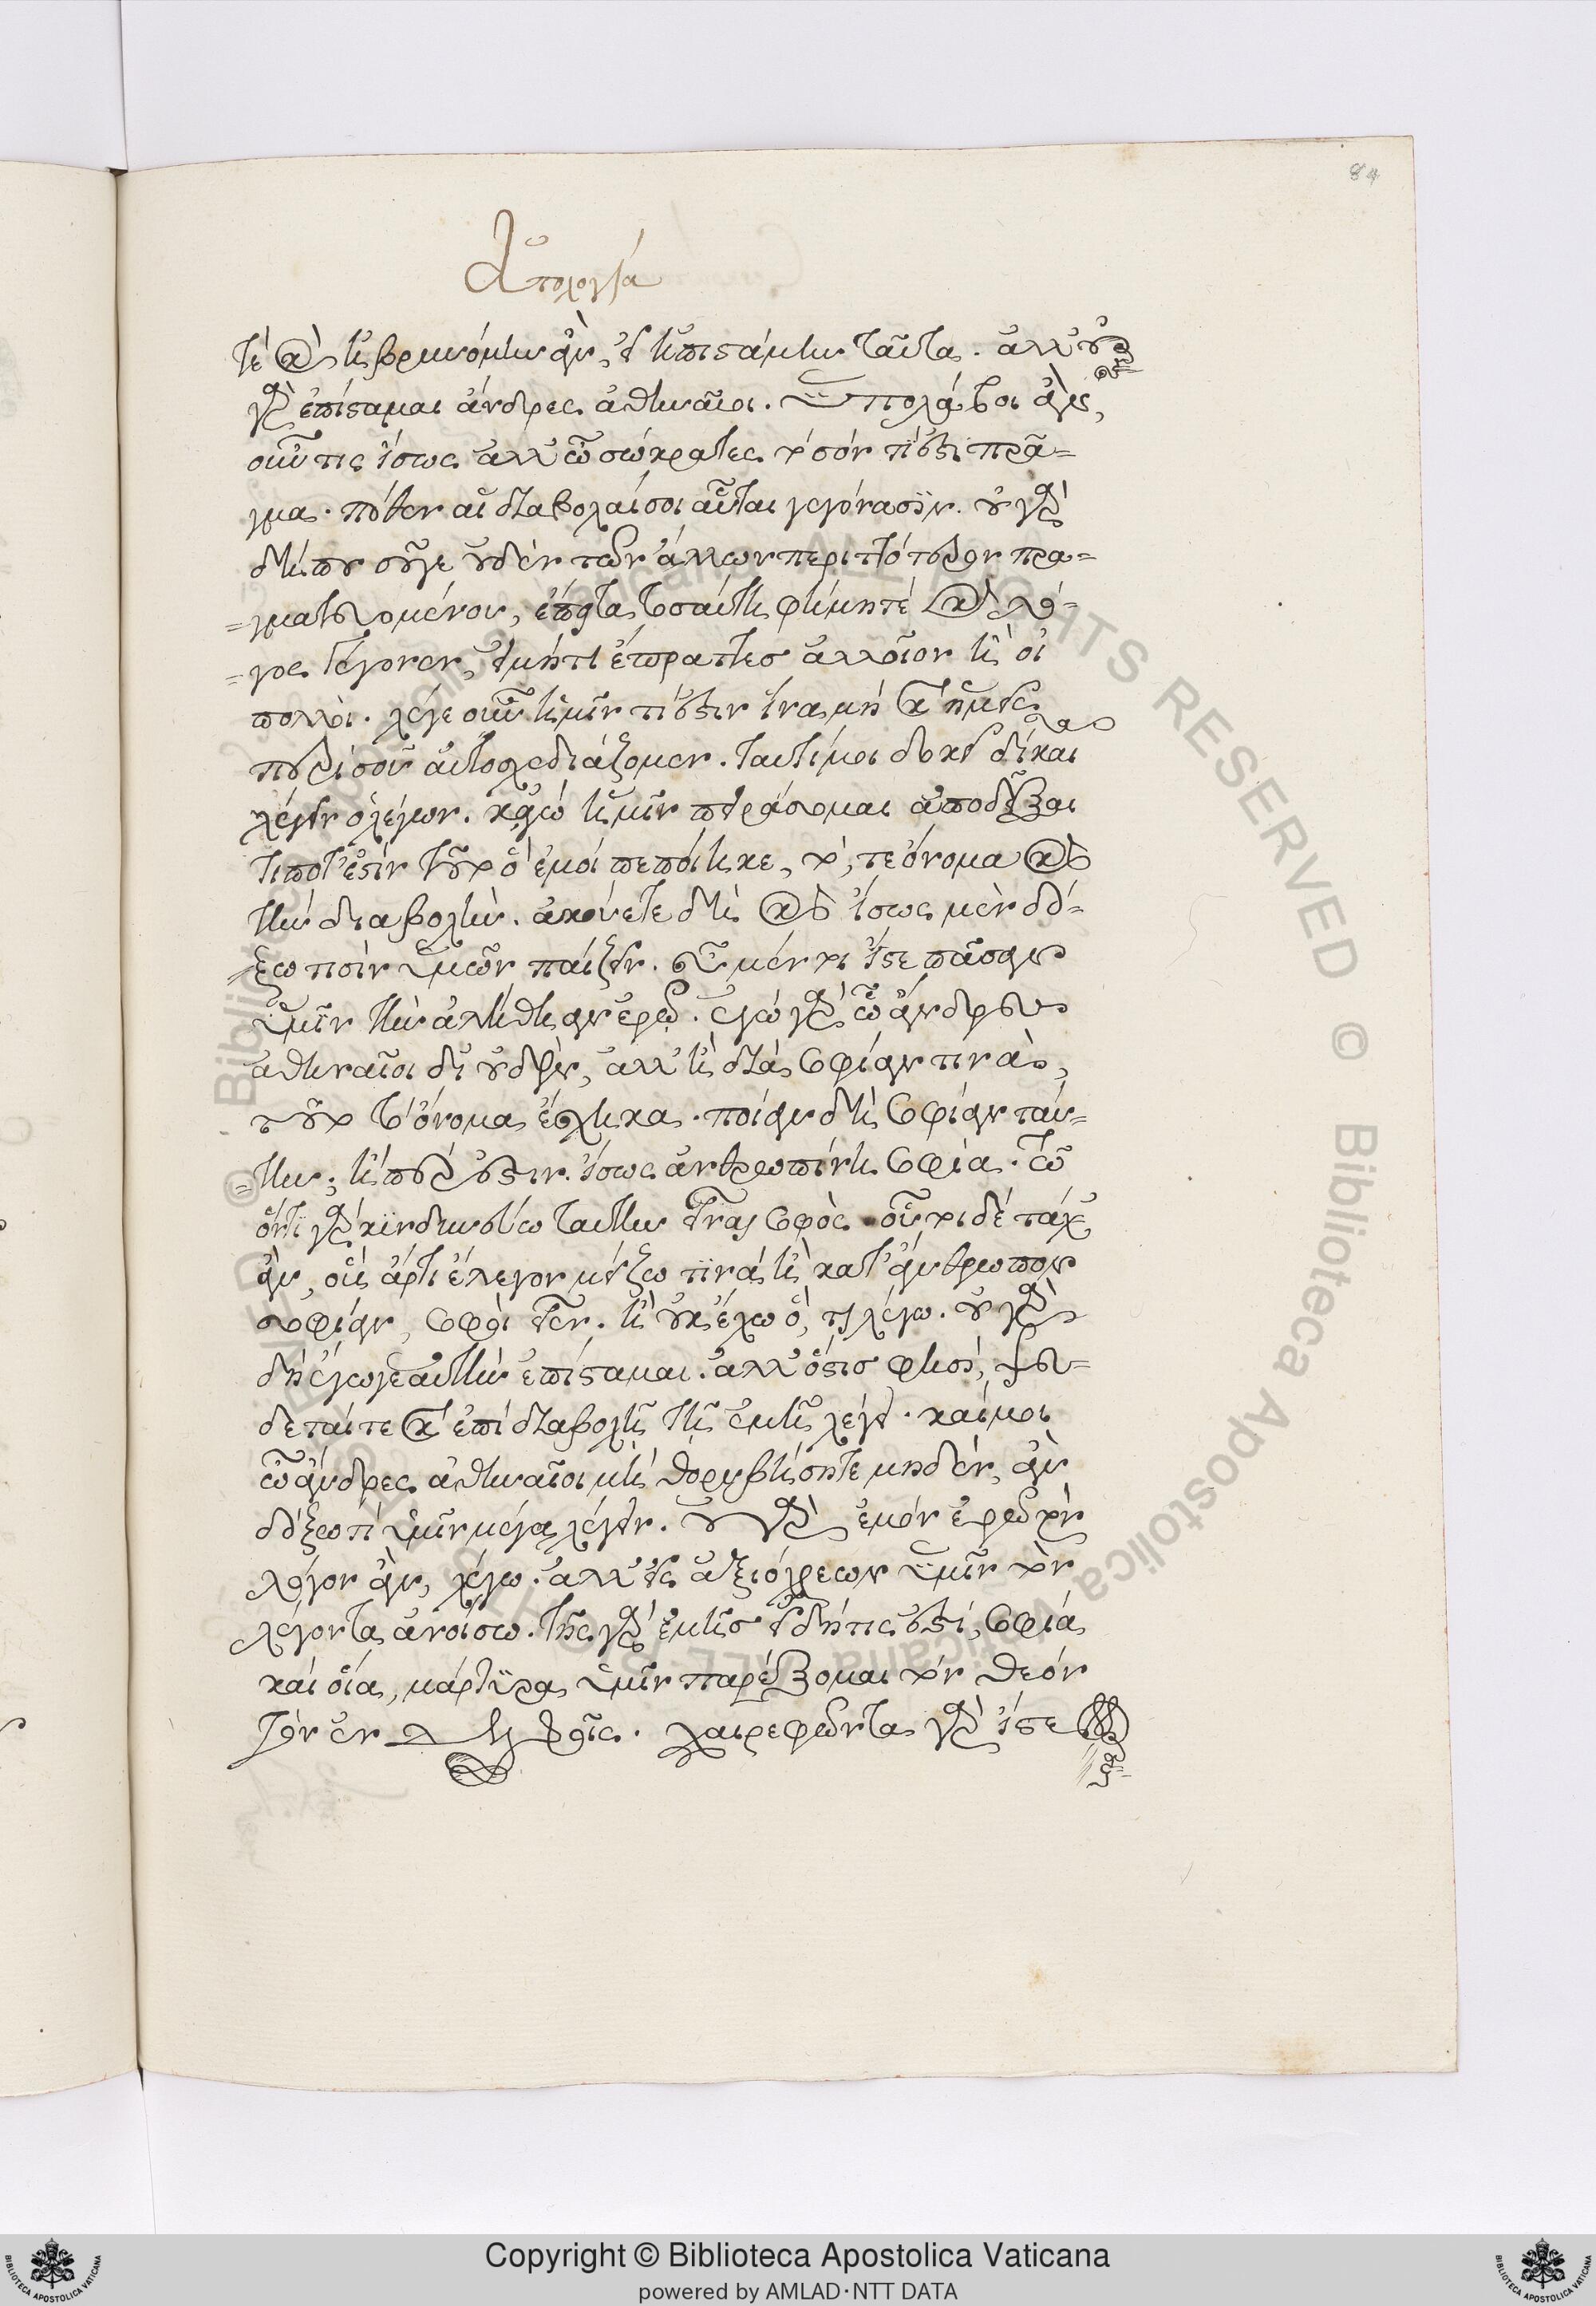 84
Ἀπολογία
τὲ καὶ ἡβρυνόμην ἂν, εἰ ἠπιστάμην ταῦτα. ἀλλ' οὐ
γὰρ ἐπίσταμαι ἄνδρες ἀθηναῖοι. Ὑπολάβοι ἂν
οὖν τις ἴσως ἀλλ' ὦ σώκρατες τὸ σόν τί ἐστι πρᾶ-
γμα. πόθεν αἱ διαβολαί σοι αὗται γεγόνασιν. οὐ γὰρ
δήπου σοῦγε οὐδὲν τῶν ἄλλων περιττότερον πρα-
=γματευομένου, ἔπειτα τοσαύτη φήμη τὲ καὶ λό-
=γος γέγονεν, εἰ μή τι ἔπραττες ἀλλοῖον ἢ οἱ
πολλοί. λέγε οὖν ἡμῖν τί ἐστιν ἵνα μὴ καὶ ἡμεῖς
περὶ σοῦ αὐτοσχεδιάζομεν. ταυτί μοι δοκεῖ δίκαια
λέγειν ὁ λέγων. κἀγὼ ἡμῖν πειράσομαι ἀποδεῖξαι
τί ποτ' ἐστὶν τοῦτο ὃ ἐμοὶ πεποίηκε, τό, τε ὄνομα καὶ
τὴν διαβολήν. ἀκούετε δὴ καὶ ἴσως μὲν δό-
ξω τισὶν ὑμῶν παίζειν. εὖ μέν τοι ἴστε πᾶσαν
ὑμῖν τὴν ἀλήθειαν ἐρῶ. ἐγὼ γὰρ ὦ ἄνδρες
ἀθηναῖοι δι' οὐδὲν, ἀλλ' ἢ διὰ σοφίαν τινὰ,
τοῦτο τὸ ὄνομα ἔσχηκα. ποίαν δὴ σοφίαν ταύ-
=την; ἥπερ ἐστὶν. ἴσως ἀνθρωπίνη σοφία. τῷ
ὄντι γὰρ κινδυνεύω ταύτην εἶναι σοφὸς. οὗτοι δὲ τάχ'
ἂν, οὓς ἄρτι ἔλεγον μείζω τινὰ ἢ κατ' ἄνθρωπον
σοφίαν, σοφοὶ εἶεν. ἢ οὐκ ἔχω ὅ, τι λέγω. οὐ γὰρ
δὴ ἔγωγε αὐτὴν ἐπίσταμαι. ἀλλ' ὅστις φησὶ, ψεύ-
δεταί τε καὶ ἐπὶ διαβολῇ τῇ ἐμῇ λέγει. καί μοι
ὦ ἄνδρες ἀθηναῖοι μὴ θορυβήσητε μηδὲν, ἂν
δόξω τι ὑμῖν μέγα λέγειν. οὐ γὰρ ἐμὸν ἐρῶ τὸν
λόγον ὃν, λέγω. ἀλλ' εἰς ἀξιόχρεων ὑμῖν τὸν
λέγοντα ἀνοίσω. τῆς γὰρ ἐμῆς εἰ δή τις ἐστί, σοφία
καὶ οἵα, μάρτυρα ὑμῖν παρέξομαι τὸν θεὸν
τὸν ἐν δελφοῖς. χαιρεφῶντα γὰρ ἴστε